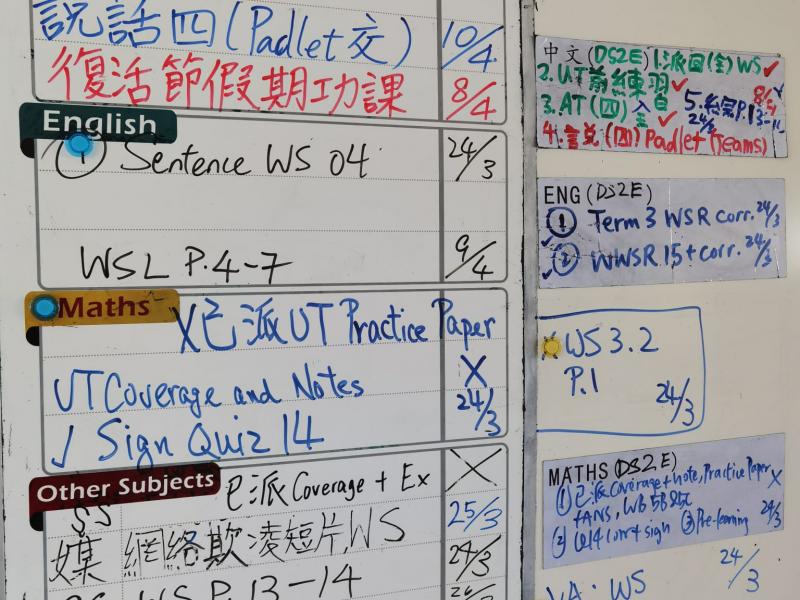 說話四(Padlet交) 10/4
復活節假期功課 8/4
English
① Sentence WS 04 24/3
WSL P.4-7 9/4
Maths
X已派UT Practice Paper
UT Coverage and Notes X
√ Sign Quiz 14 24/3
Other Subjects
SS 已派Coverage + Ex X
媒 網絡欺凌短片,WS 25/3
WS P.13-14 24/3
中文(DS2E) 1.派回(全)WS✓
2.UT前練習✓ 8/4
3.AT(四)✓ 24/3
4.說(四)Padlet(Teams)
ENG (DS2E)
① Term 3 WSR corr. 24/3
② WWSR 15+corr. 24/3
WS 3.2
P.1 24/3
MATHS (DS2E)
①已派Coverage+note, Practice Paper X
+ANS, WB 5B
② Q14 corr+sign ③Pre-learning 24/3
VA: WS 24/3